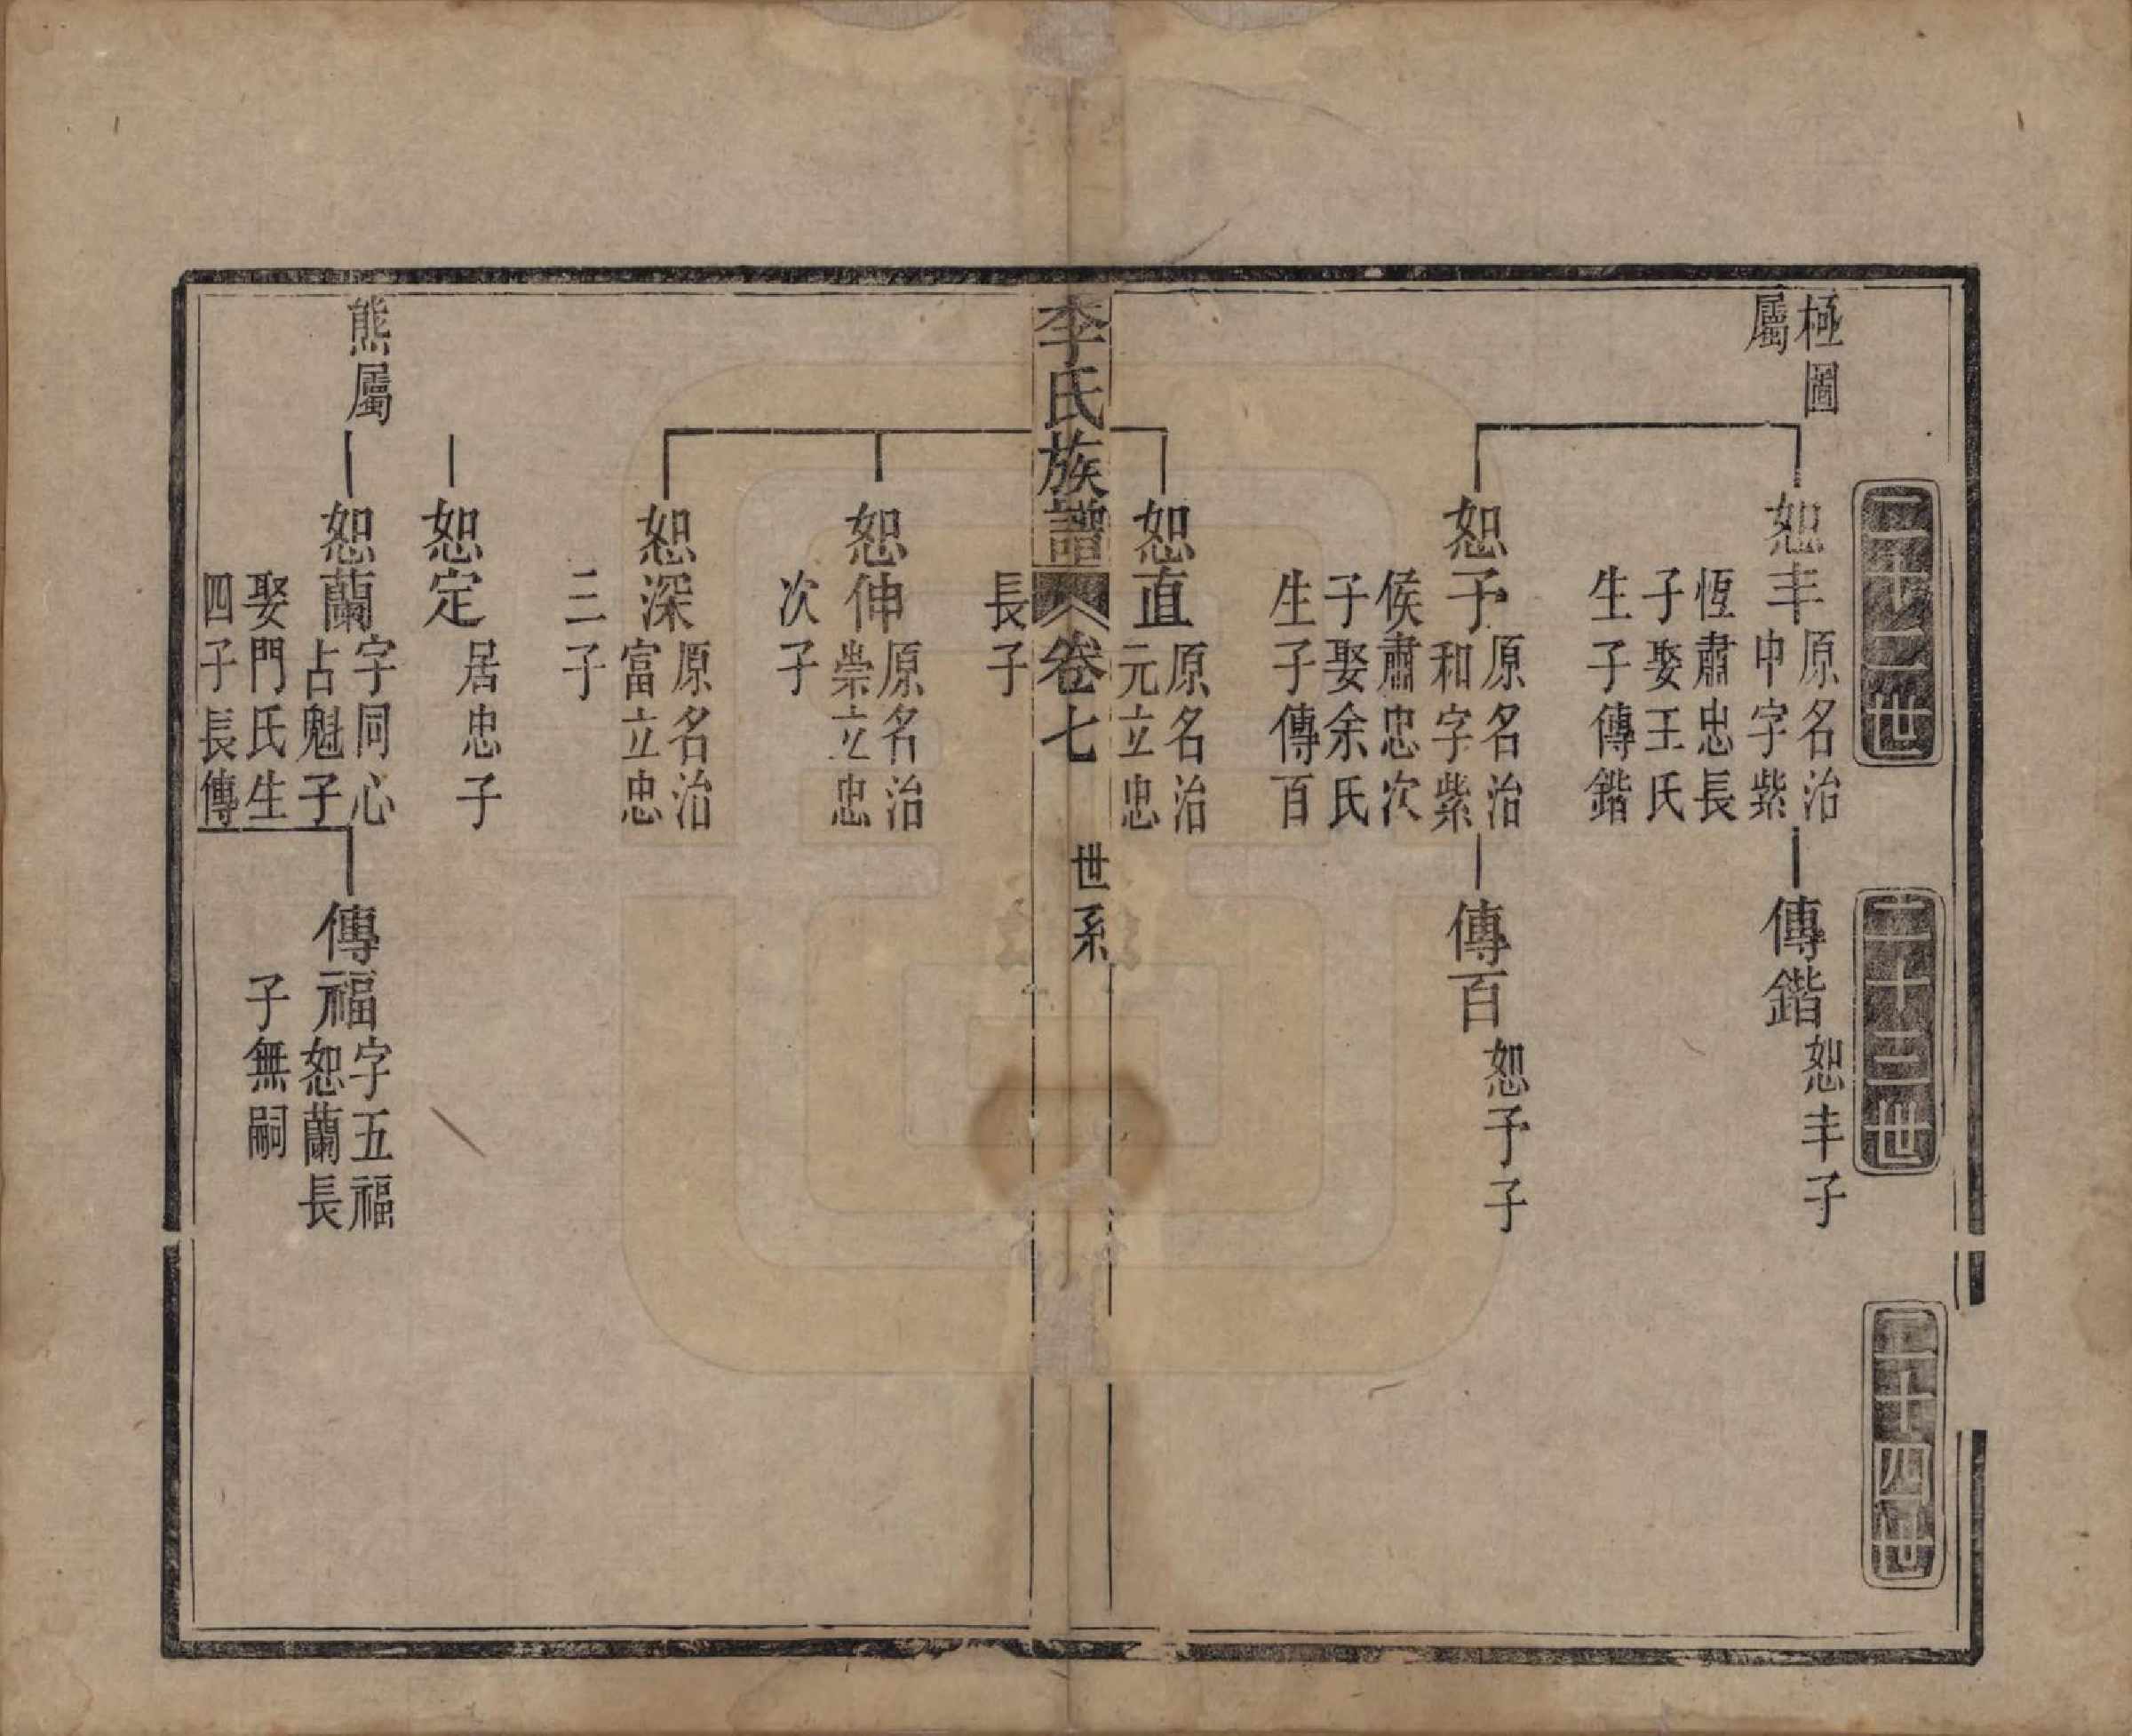 二十二世
二十三世
二十四世
極圖
屬
恕丰
原名治
中字紫
恆肅忠長
子娶王氏
生子傳鍇
傳鍇
恕丰子
恕予
原名治
和字紫
侯肅忠次
子娶余氏
生子傳百
傳百
恕予子
恕直
原名治
元立忠
長子
李氏族譜
卷七
世系
恕伸
原名治
崇立忠
次子
恕深
原名治
富立忠
三子
恕定
居忠子
熊屬
恕蘭
字同心
占魁子
娶門氏生
四子長傳
傳福
字五福
恕蘭長
子無嗣